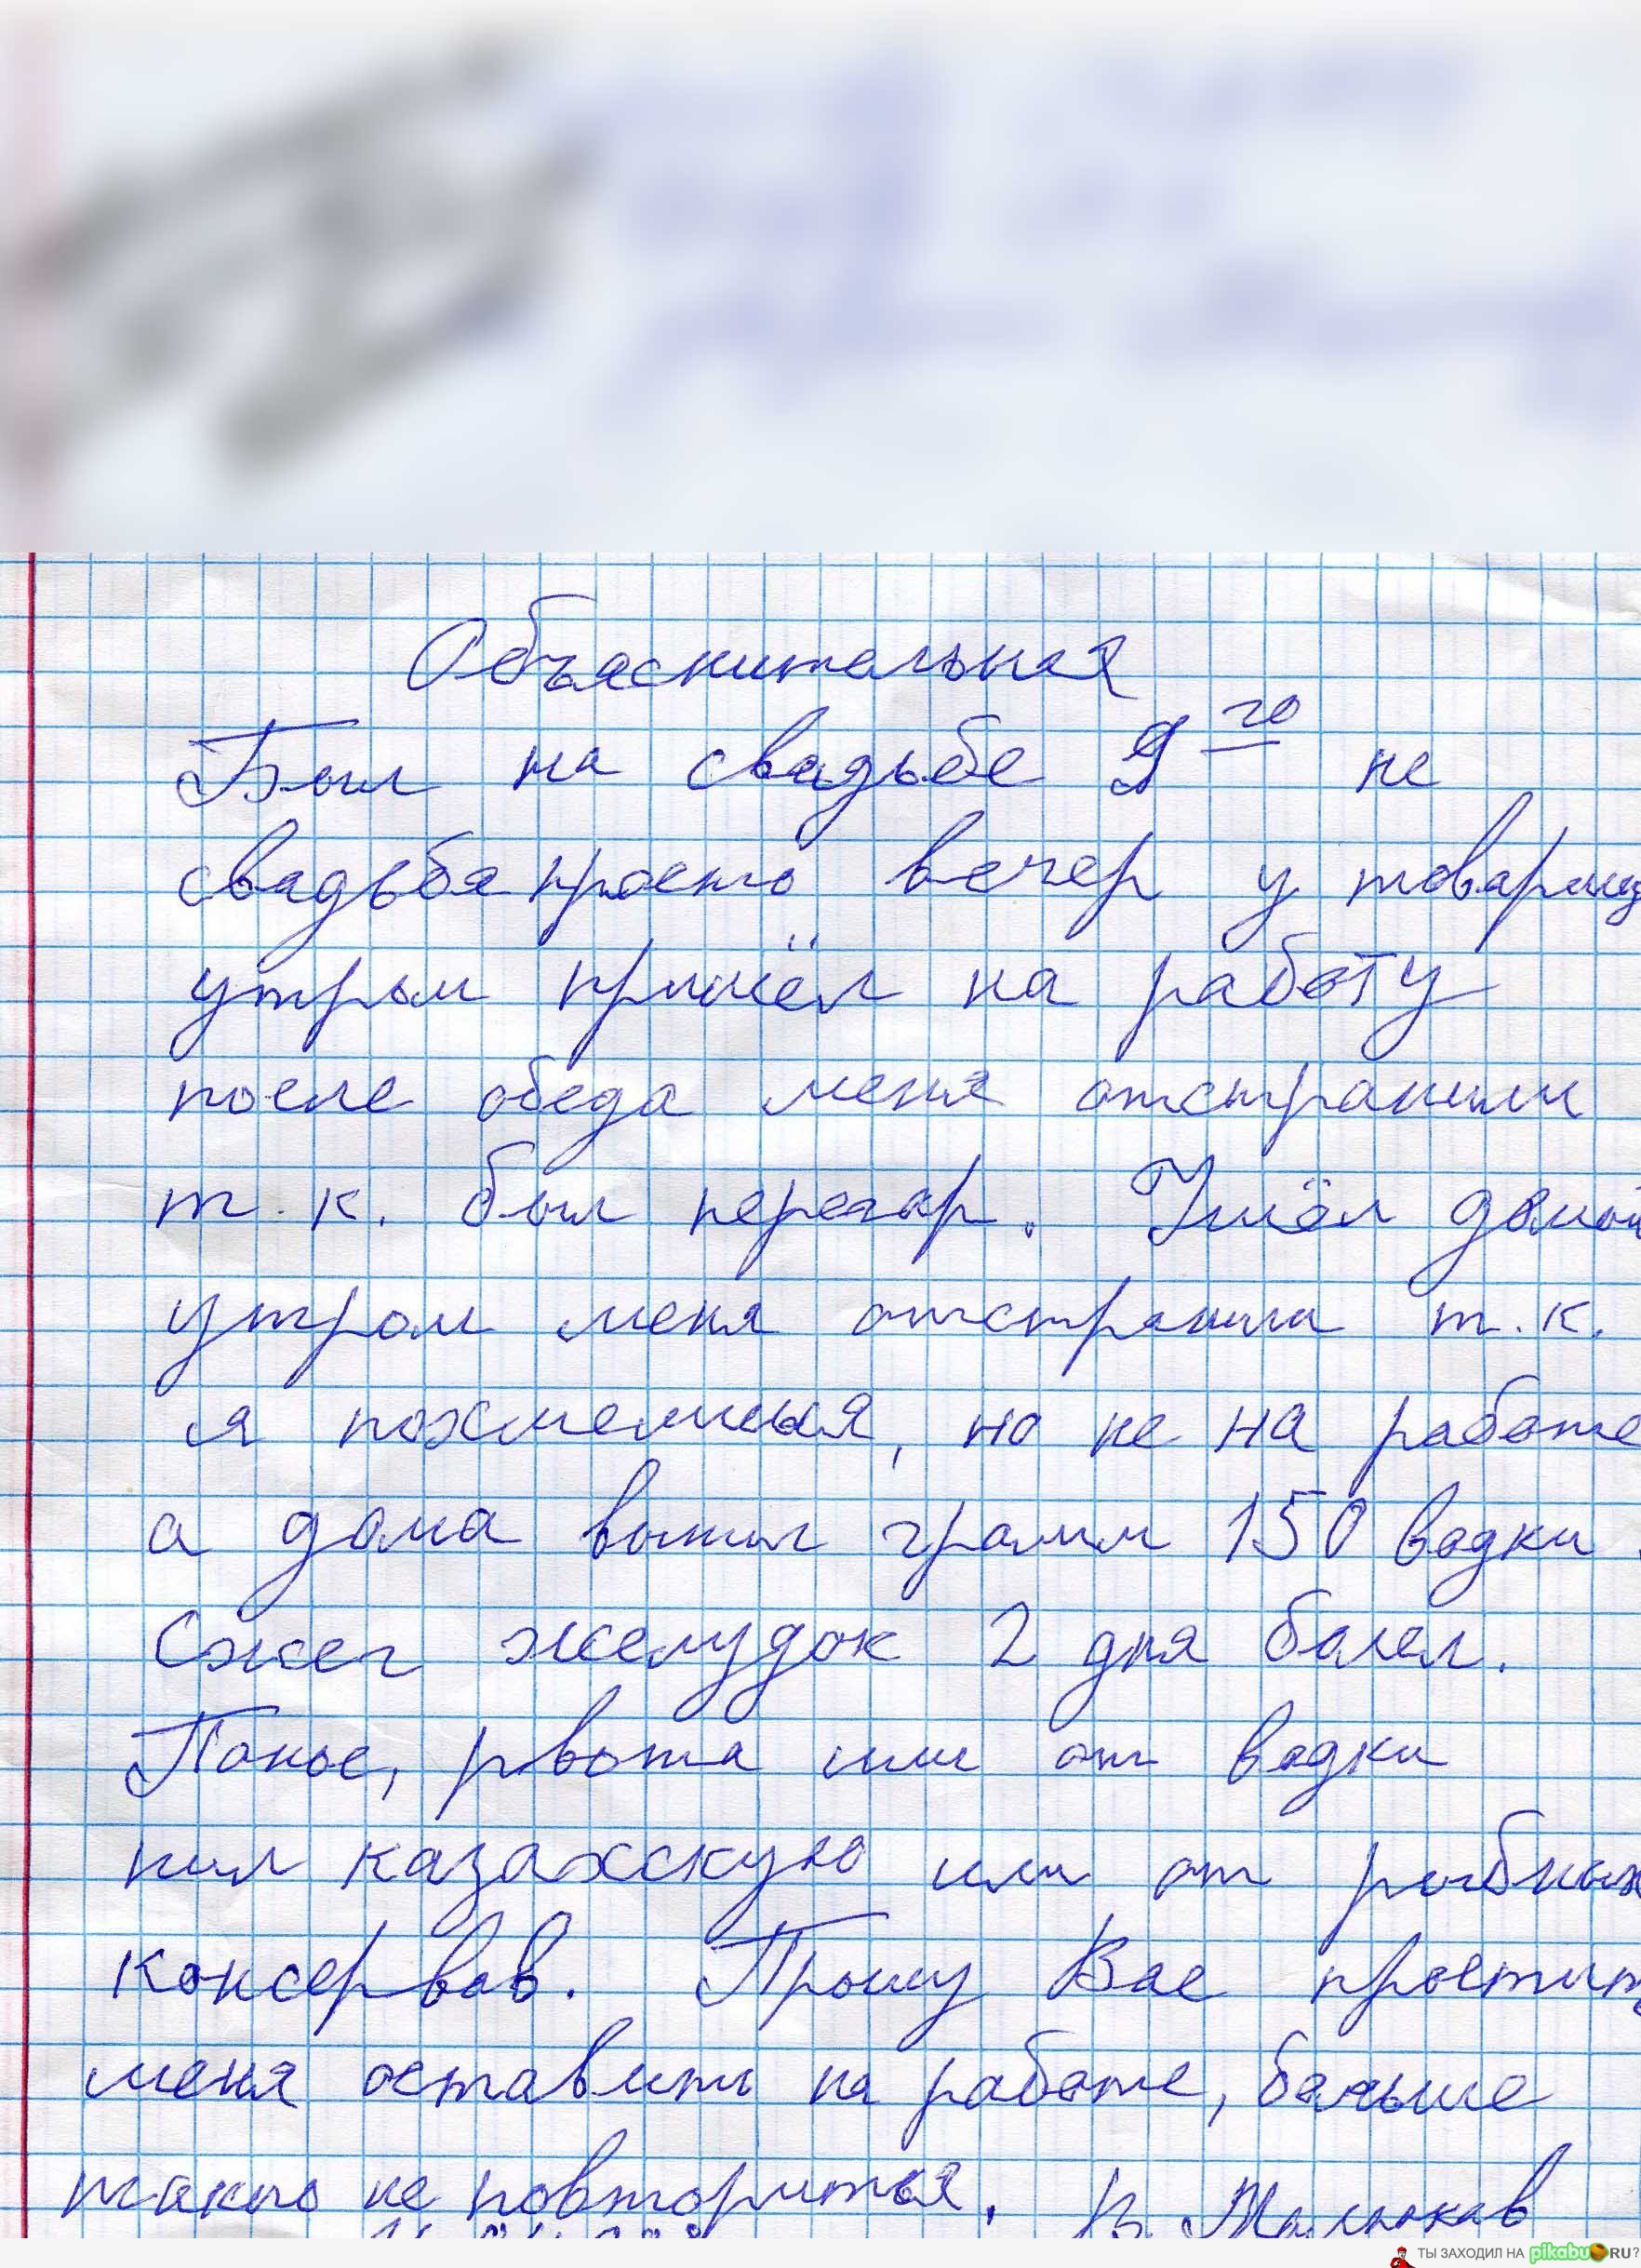 Объяснительная
Был на свадьбе 9го не
свадьба просто вечер у товарищ
утром пришёл на работу
после обеда меня отстранили
т.к. был перегар. Ушёл домой
утром меня отстранили т.к.
я похмелился, но не на работе
а дома выпил грамм 150 водки.
Сжег желудок 2 дня болел.
Понос, рвота или от водки
пил казахскую или от рыбных
консервов. Прошу Вас простить
меня оставить на работе, больше
такого не повторится.
ТЫ ЗАХОДИЛ НА pikabu.RU?